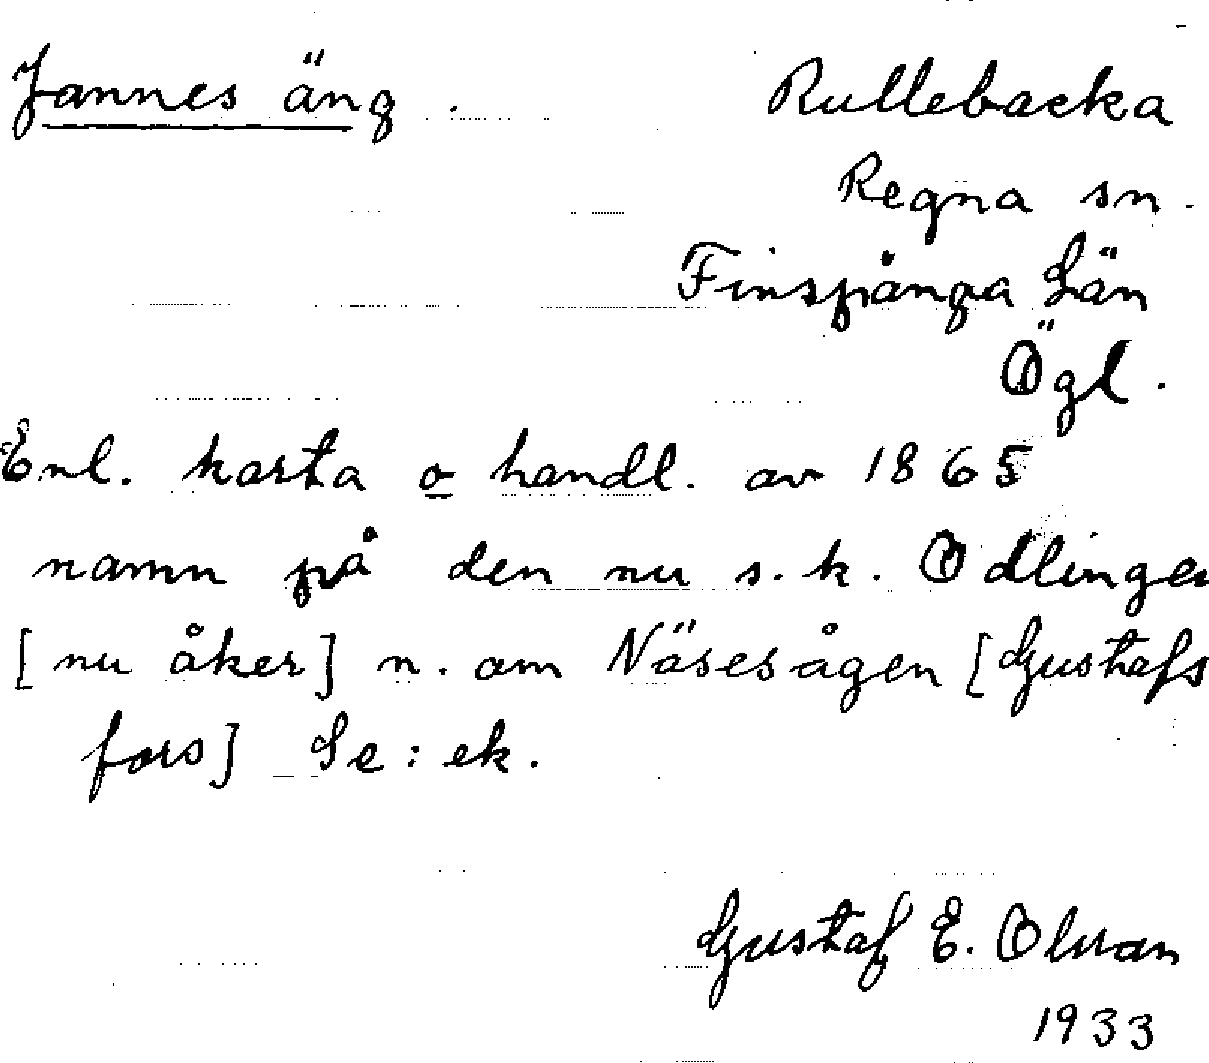 Jannes äng. Rullebacka
Regna sn.
Finspånga Län
Ögl.
Enl. karta o handl. av 1865
namn på den nu s.k. Odlingen
[nu åker] n. om Näsesågen [Gustafs
fors] Se: ek.
Gustaf E. Olsson
1933